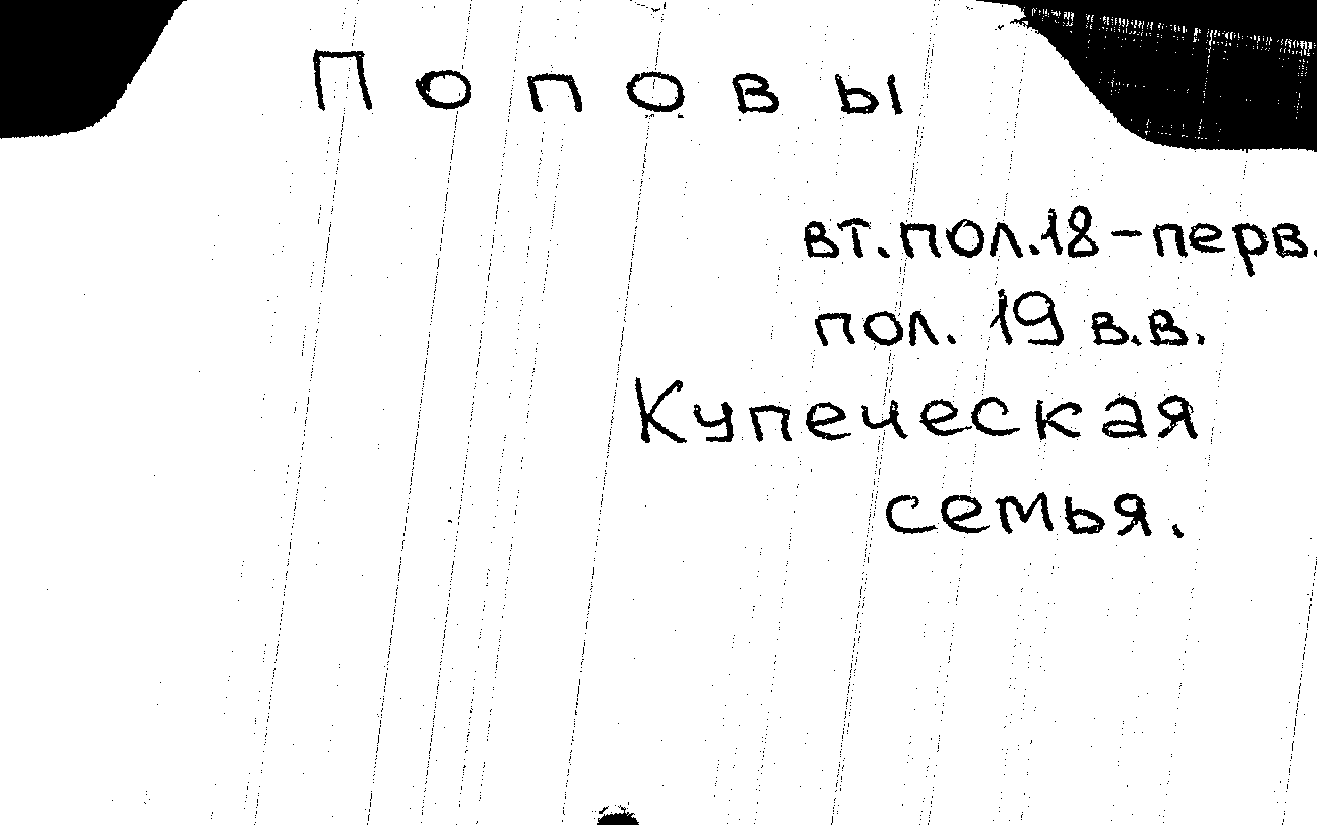 Поповы
вт.пол.18-перв.
пол. 19 в.в.
Купеческая
семья.